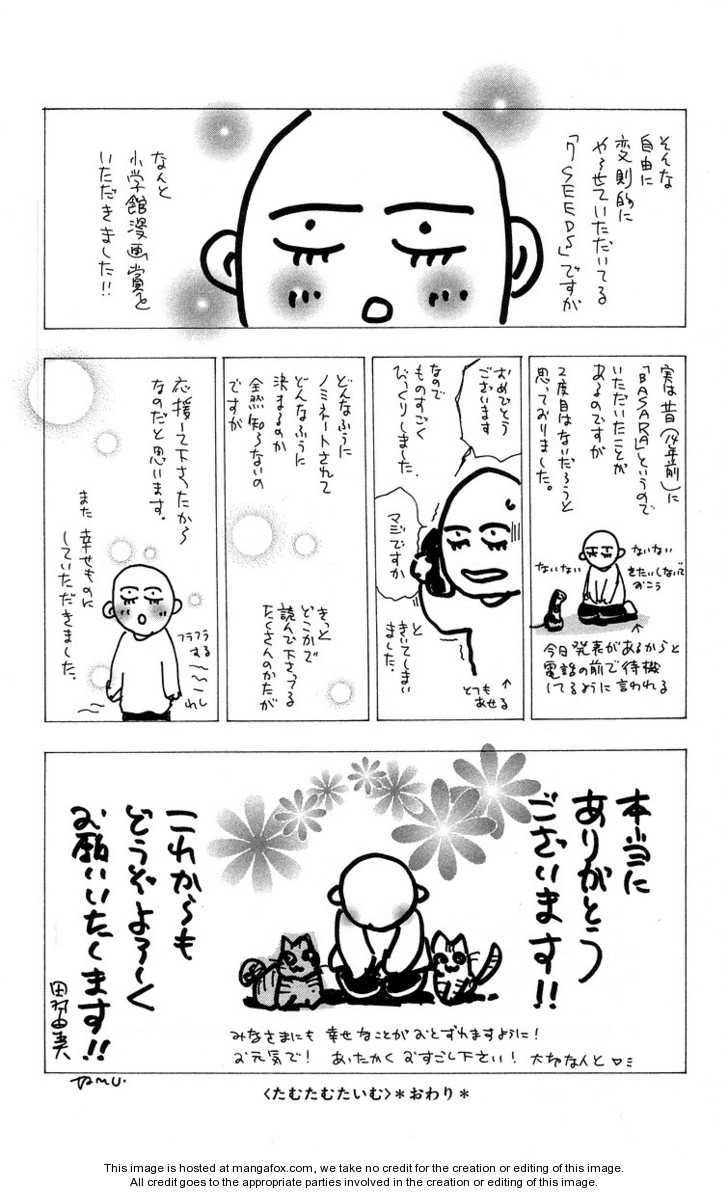 そんな
自由に
変則的に
やらせていただいてる
「7SEEDS」ですが
なんと
小学館漫画賞を
いただきました!!
実は昔(14年前)に
「BASARA」というので
いただいたことが
あるのですが
2度目はないだろうと
思っておりました。
ないない
きたいしないで
おこう
ないない
今日発表があるからと
電話の前で待機
してるように言われる
おめでとう
ございます
なので
ものすごく
びっくりしました.
マジですか
と
きいてしまい
ました
とても
あせる
どんなふうに
ノミネートされて
どんなふうに
決まるのか
全然知らないの
ですが
きっと
どこかで
読んで下さってる
たくさんのかたが
応援して下さったから
なのだと思います.
また 幸せものに
していただきました.
フラフラ
する
うれし
本当に
ありがとう
ございます!!
これからも
どうぞよろしく
お願いいたします!!
田村由美
TAMU.
みなさまにも 幸せなことが おとずれますように!
お元気で! あったかく おすごし下さい! 大切な人と
〈たむたむたいむ〉*おわり*
This image is hosted at mangafox.com, we take no credit for the creation or editing of this image.
All credit goes to the appropriate parties involved in the creation or editing of this image.